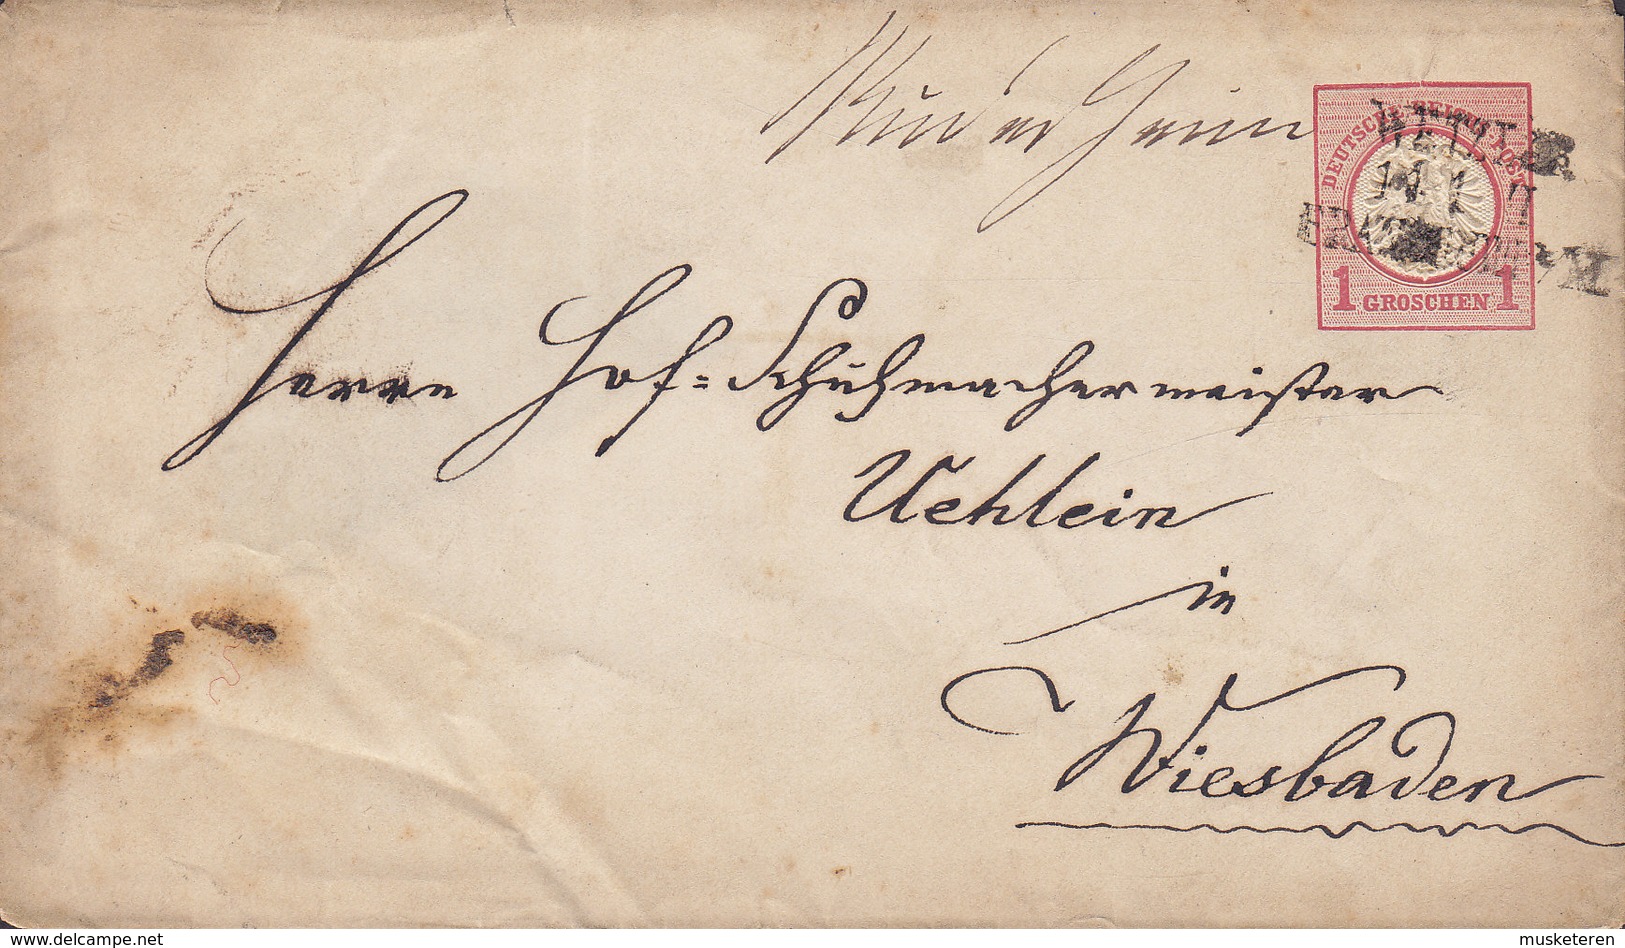 Rüdesheim
DEUTSCHE REICHS POST
WETZLAR
1 GROSCHEN 1
Herrn Hof=Schuhmachermeister
Uehlein
in
Wiesbaden
delcampe.net
musketeren